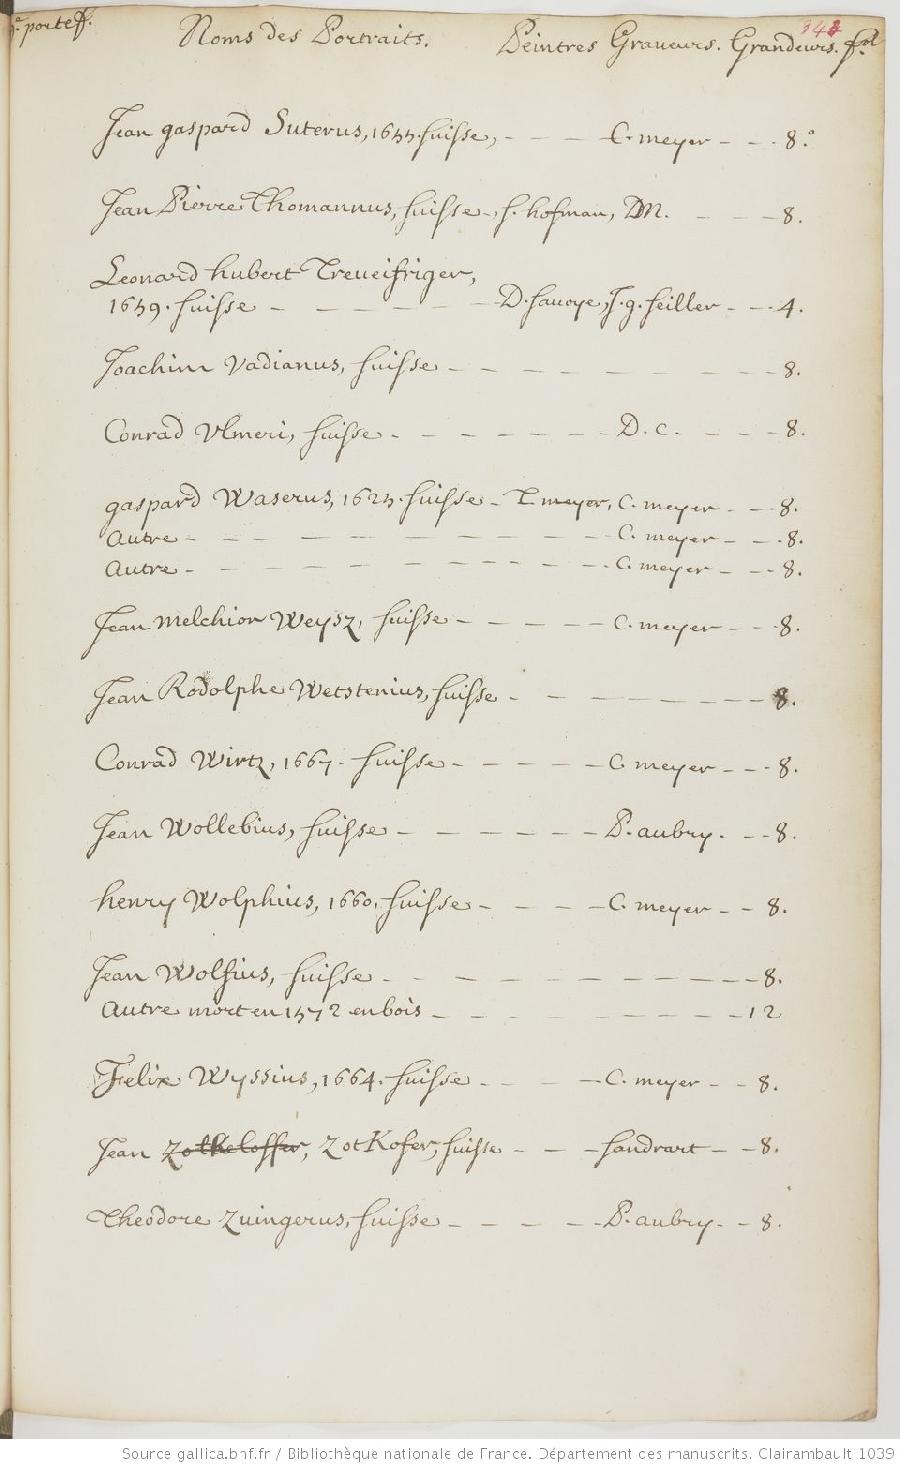 portef. Noms des Portraits. Peintres Graveurs. Grandeurs. fol
Jean gaspard Suterus, 1655. suisse, - - - C. meyer - - . 8.°
Jean Pierre Thomannus, suisse -, s. hofman, DM. - - - 8.
Leonard hubert Treveifriger,
1659. suisse - - - - - - D. savoye, J. g. seiller - - . 4.
Joachim Vadianus, suisse - - - - - - - - - 8.
Conrad Vlmeri, suisse - - - - - - D. c. - - - 8.
gaspard Waserus, 1625. suisse - T. meyer, C. meyer - - 8.
Autre - - - - - - - - - C. meyer - - . 8.
Autre - - - - - - - - - C. meyer - - - 8.
Jean Melchior Weysz, suisse - - - - - C. meyer - - . 8.
Jean Rodolphe Wetstenius, suisse - - - - - - - 8.
Conrad Wirtz, 1667 - suisse - - - - - C. meyer - - . 8.
Jean Wollebius, suisse - - - - - - P. aubry. - - 8.
henry Wolphius, 1660. suisse - - - - C. meyer - - 8.
Jean Wolfius, suisse - - - - - - - - - 8.
Autre mort en 1572 en bois - - - - - - - 12
Felix Wyssius, 1664. suisse - - - C. meyer - - 8.
Jean Zotkeloffer, ZotKofer, suisse - - - sandrart - - 8.
Theodore Zuingerus, suisse - - - - - P. aubry - - 8.
Source gallica.bnf.fr / Bibliothèque nationale de France. Département des manuscrits. Clairambault 1039